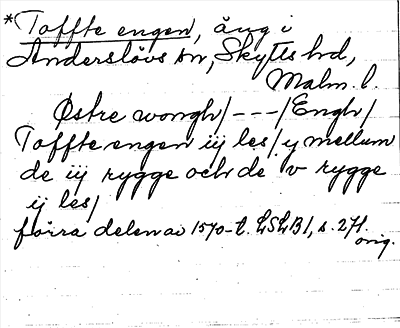 *Toffte engen, äng i
Anderslövs sn, Skytts hd,
Malm. l.
Østre wongh/---/Engh/
Toffte engen iij les/ y mellum
de iij rygge och de v rygge
ij les/
förra delen av 1570-t. LSLB1, s. 271.
orig.